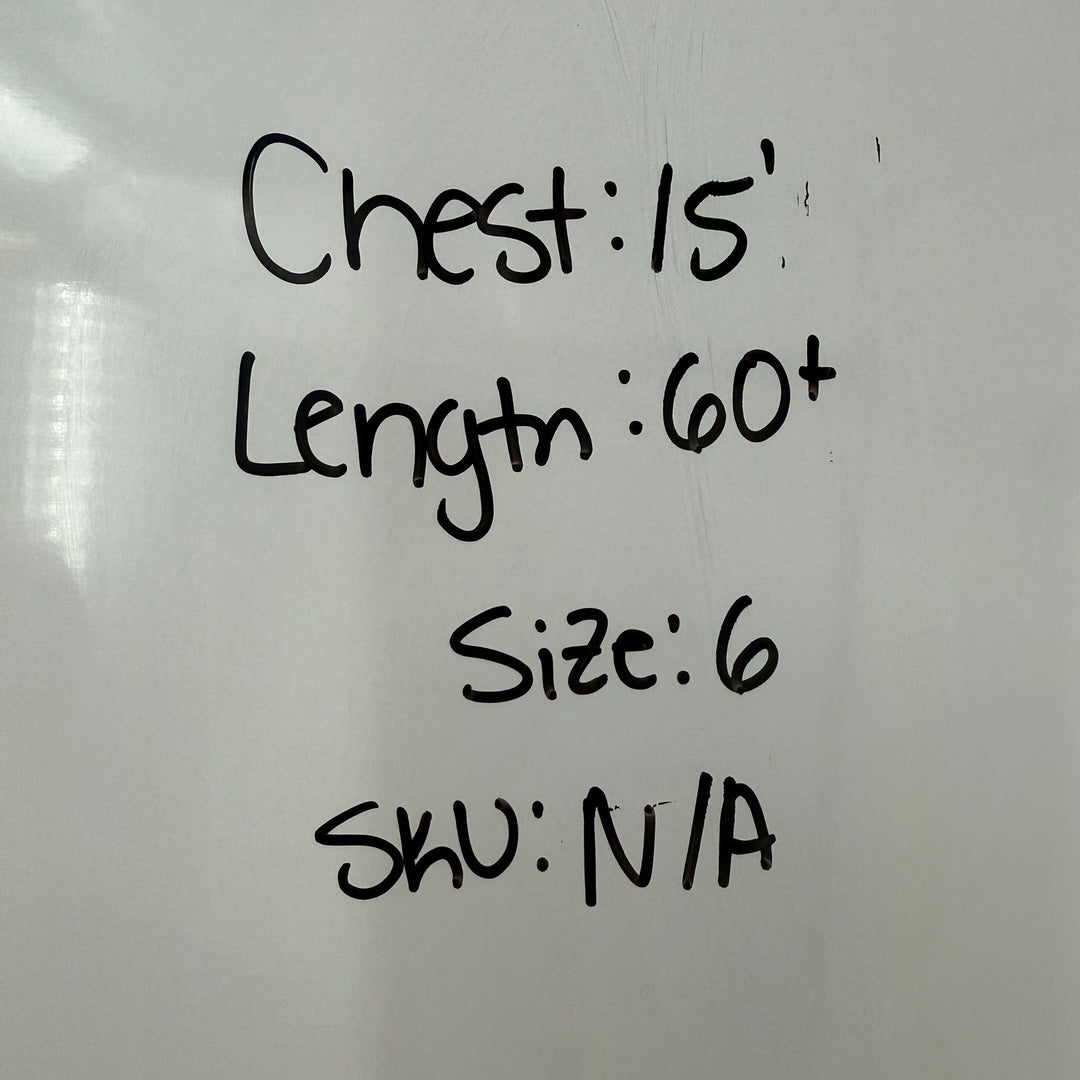 Chest: 15'
Length: 60+
Size: 6
SKU: N/A